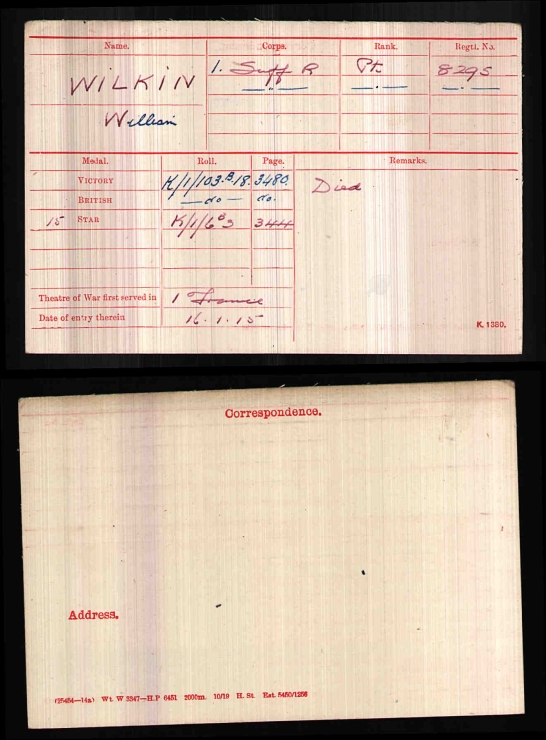 Name. Corps. Rank. Regtl. No.
WILKIN 1. Suff R Pte 8295
William
Medal. Roll. Page. Remarks.
VICTORY K/1/103.B.18. 3480. Died
BRITISH —do— do.
15 STAR K/1/6 344
Theatre of War first served in 1 France
Date of entry therein 16.1.15
K. 1380.
Correspondence.
Address.
(25454—14a) Wt. W 3347—H.P 6451 2000m. 10/19 H. St. Est. 5450/1256